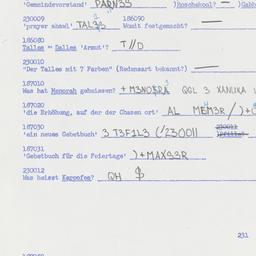 'Gemeindevorstand' PARN3S )hoschekool? — )Gabb
230009 186090
'prayer shawl' TAL3S Womit festgemacht? —
185080
Talles — Dalles 'Armut'? T//D
230010
"Der Talles mit 7 Farben" (Redensart bekannt?) —
187010
Was hat Menorah geheissen? + M3NOSRA QGL 3 XANUKA
187020
'die Erhöhung, auf der der Chasen ort' AL MEM3R /)+
187030 230012
'ein neues Gebetbuch' 3 T3F1L3 (/230011
187031
'Gebetbuch für die Feiertage' )+MAXS3R
230012
Was heisst Karpofes? QH $
231